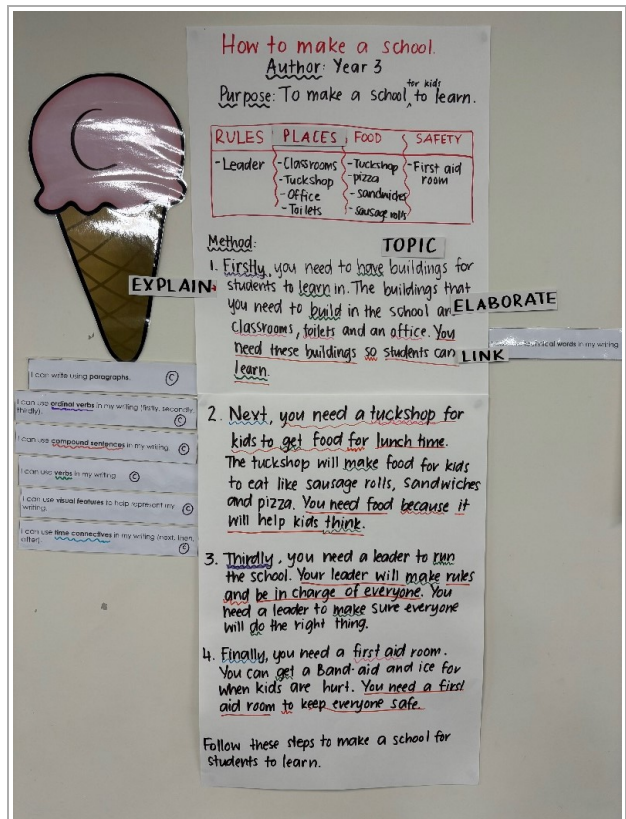 How to make a school.
Author: Year 3
for kids
Purpose: To make a school ^ to learn.
RULES PLACES FOOD SAFETY
-Leader
-Classrooms
-Tuckshop
-Office
-Toilets
-Tuckshop
-pizza
-sandwiches
-sausage rolls
-First aid
room
Method:
TOPIC
1. Firstly, you need to have buildings for
students to learn in. The buildings that
EXPLAIN
you need to build in the school are
ELABORATE
classrooms, toilets and an office. You
need these buildings so students can
LINK
learn.
2. Next, you need a tuckshop for
kids to get food for lunch time.
The tuckshop will make food for kids
to eat like sausage rolls, sandwiches
and pizza. You need food because it
will help kids think.
3. Thirdly, you need a leader to run
the school. Your leader will make rules
and be in charge of everyone. You
need a leader to make sure everyone
will do the right thing.
4. Finally, you need a first aid room.
You can get a Band-aid and ice for
when kids are hurt. You need a first
aid room to keep everyone safe.
Follow these steps to make a school for
students to learn.
C
I can write using paragraphs. C
I can use ordinal verbs in my writing (firstly, secondly,
thirdly). C
I can use compound sentences in my writing. C
I can use verbs in my writing C
I can use visual features to help represent my
writing. C
I can use time connectives in my writing (next, then,
after). C
words in my writing